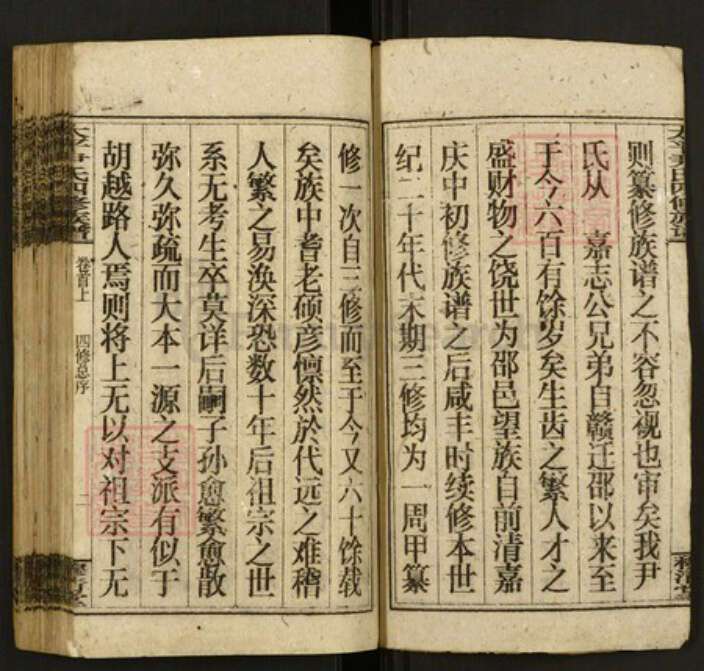 则纂修族谱之不容忽视也审矣我尹
氏从 嘉志公兄弟自赣迁邵以来至
于今六百有馀岁矣生齿之繁人才之
盛财物之饶世为邵邑望族自前清嘉
庆中初修族谱之后咸丰时续修本世
纪二十年代末期三修均为一周甲纂
修一次自三修而至于今又六十馀载
矣族中耆老硕彦懔然於代远之难稽
人繁之易涣深恐数十年后祖宗之世
系无考生卒莫详后嗣子孙愈繁愈散
弥久弥疏而大本一源之支派有似于
胡越路人焉则将上无以对祖宗下无
尹氏四修族谱
卷首上
四修总序
二